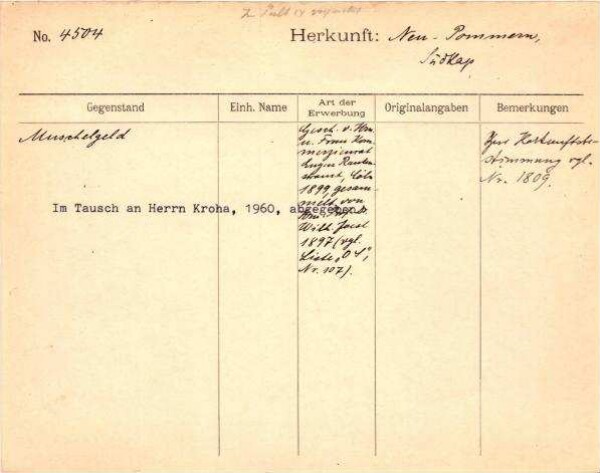 No. 4504
Herkunft: Neu-Pommern,
Südkap.
Gegenstand
Einh. Name
Art der
Erwerbung
Originalangaben
Bemerkungen
Muschelgeld
Gesch. v. Hrn.
u. Frau Kom-
merzienrat
Eugen Rauten-
strauch, Cöln
1899, gesam-
melt von
Wilh. Joest
1897 (vgl.
Liste „O 4",
Nr. 107).
Zur Herkunftsbe-
stimmung vgl.
Nr. 1809.
Im Tausch an Herrn Kroha, 1960, abgegeben.